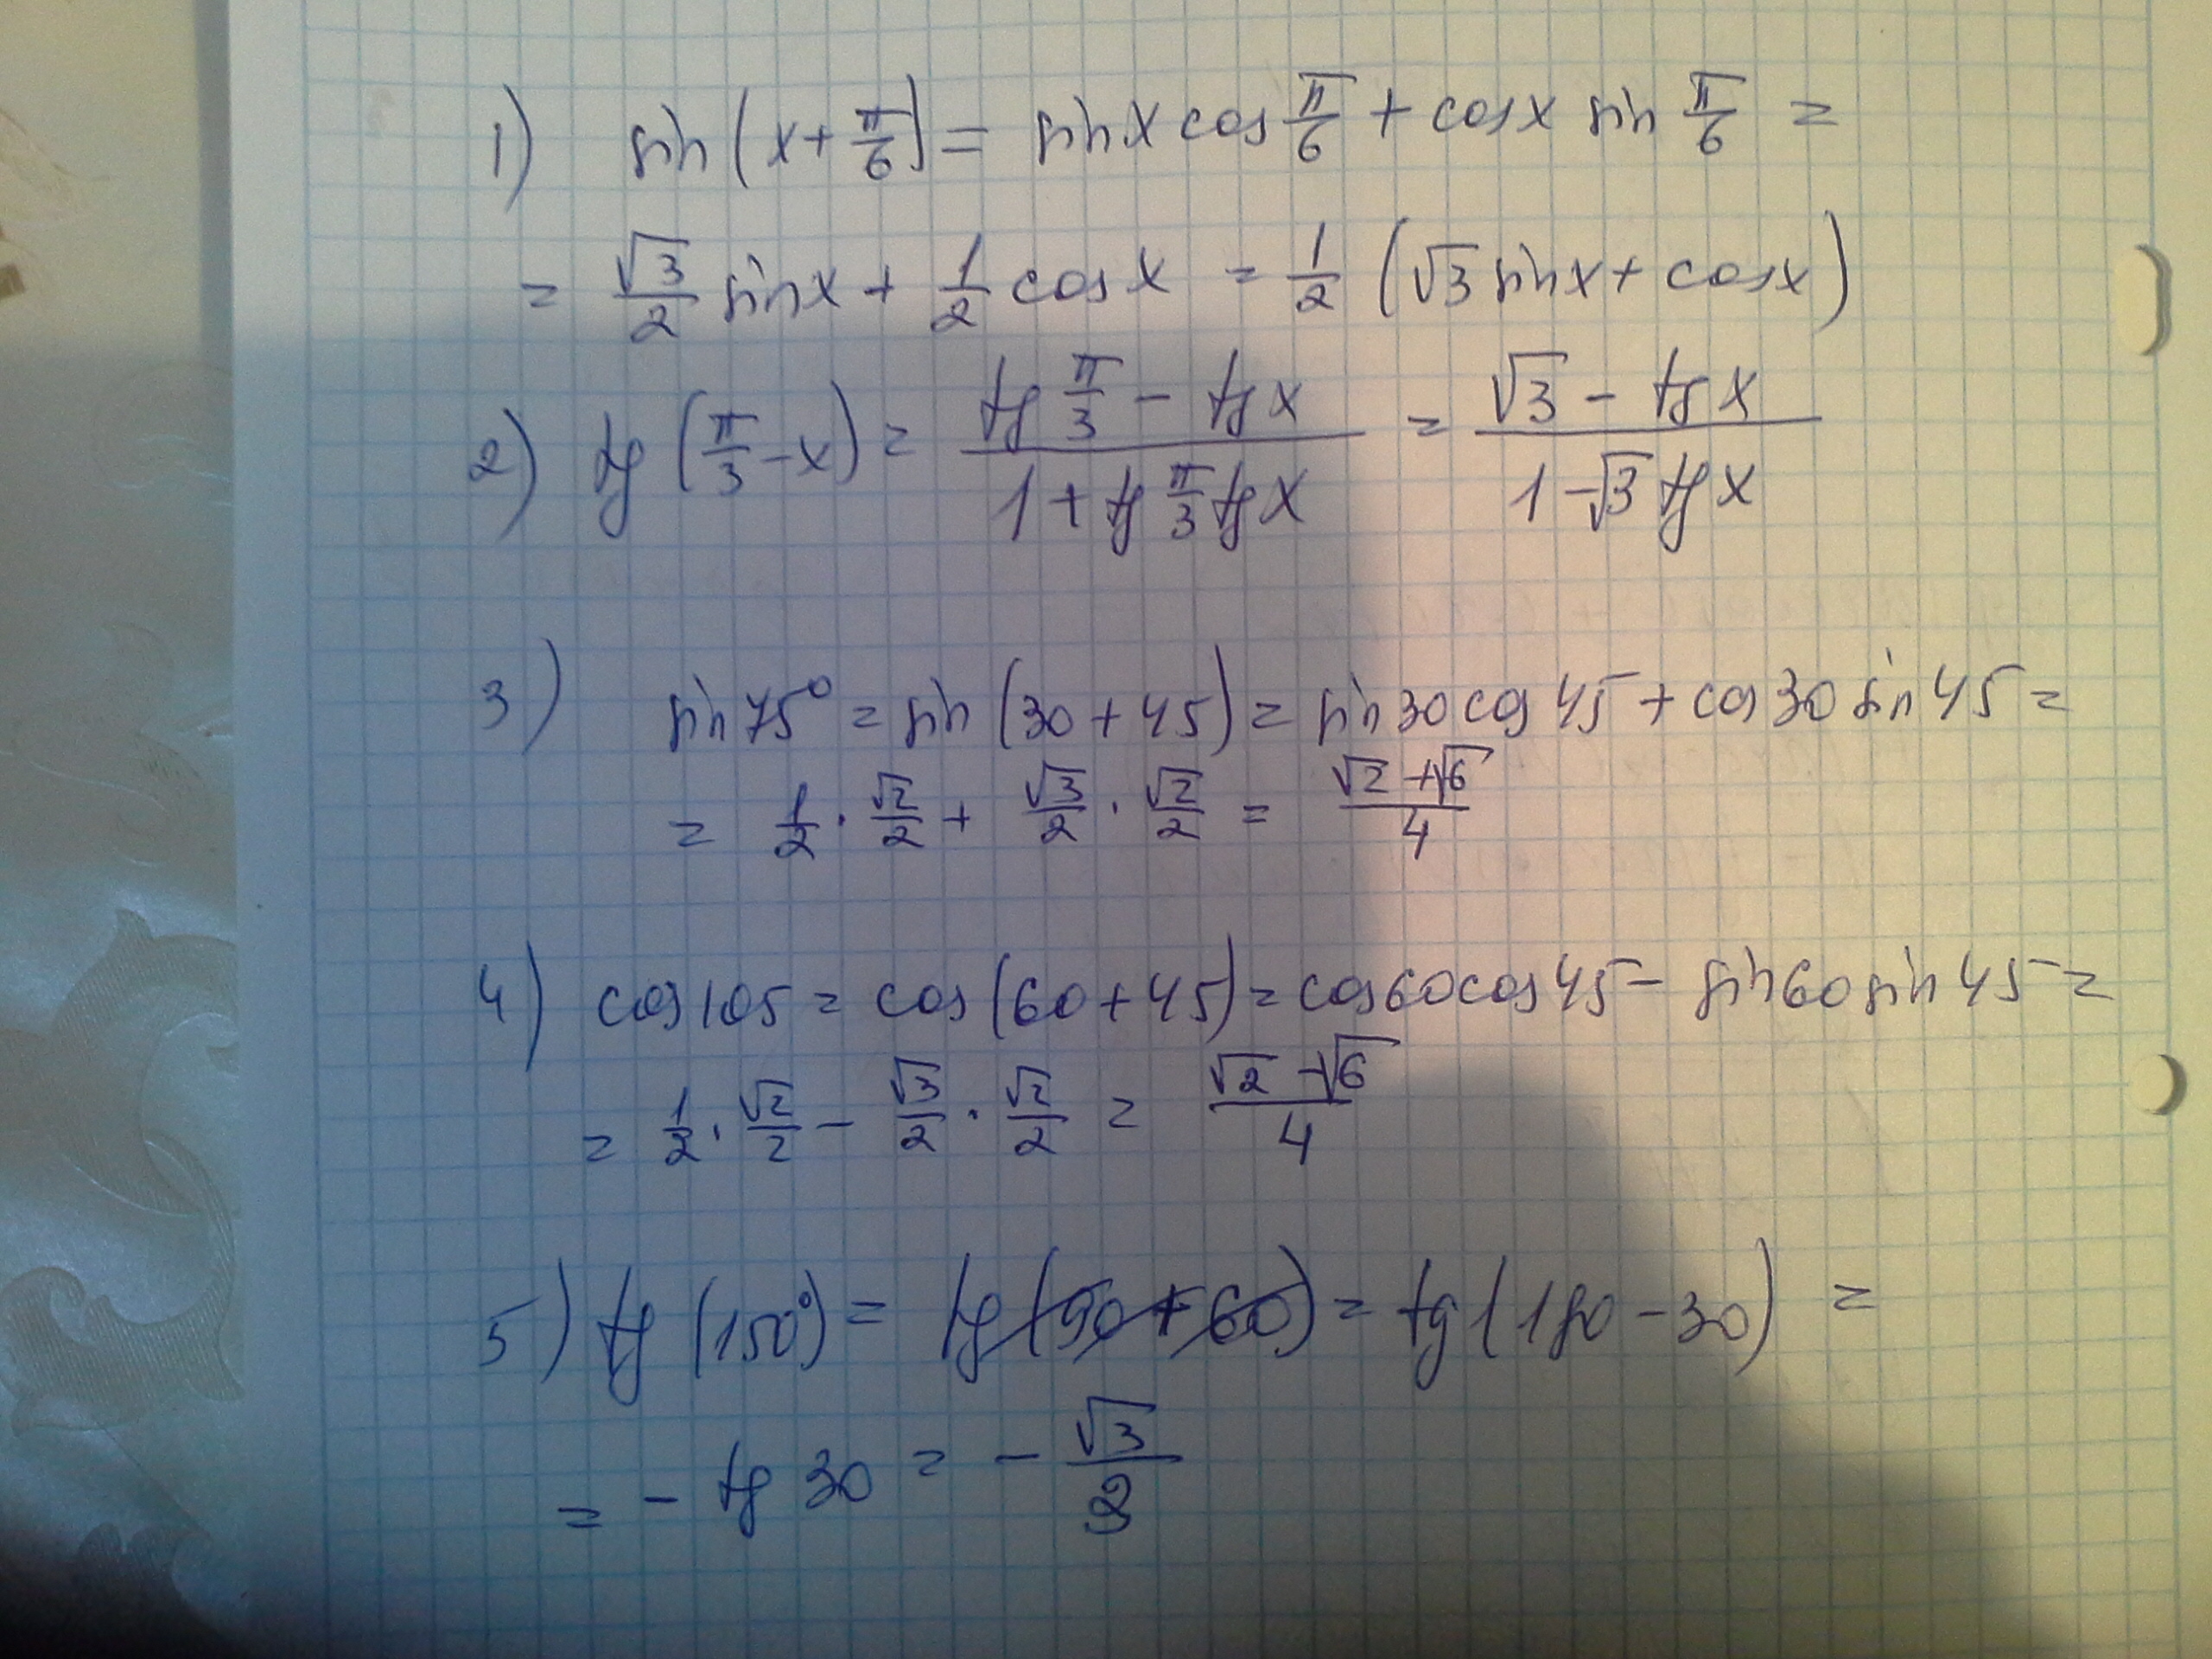 1) sin(x+π/6) = sinx cos π/6 + cosx sin π/6 =
= √3/2 sinx + 1/2 cosx = 1/2 (√3 sinx + cosx)
2) tg (π/3 - x) = (tg π/3 - tg x)/(1 + tg π/3 tg x) = (√3 - tg x)/(1 - √3 tg x)
3) sin 75° = sin (30 + 45) = sin 30 cos 45 + cos 30 sin 45 =
= 1/2 · √2/2 + √3/2 · √2/2 = (√2 + √6)/4
4) cos 105 = cos (60 + 45) = cos 60 cos 45 - sin 60 sin 45 =
= 1/2 · √2/2 - √3/2 · √2/2 = (√2 - √6)/4
5) tg (150°) = tg (90 + 60) = tg (180 - 30) =
= - tg 30 = - √3/2